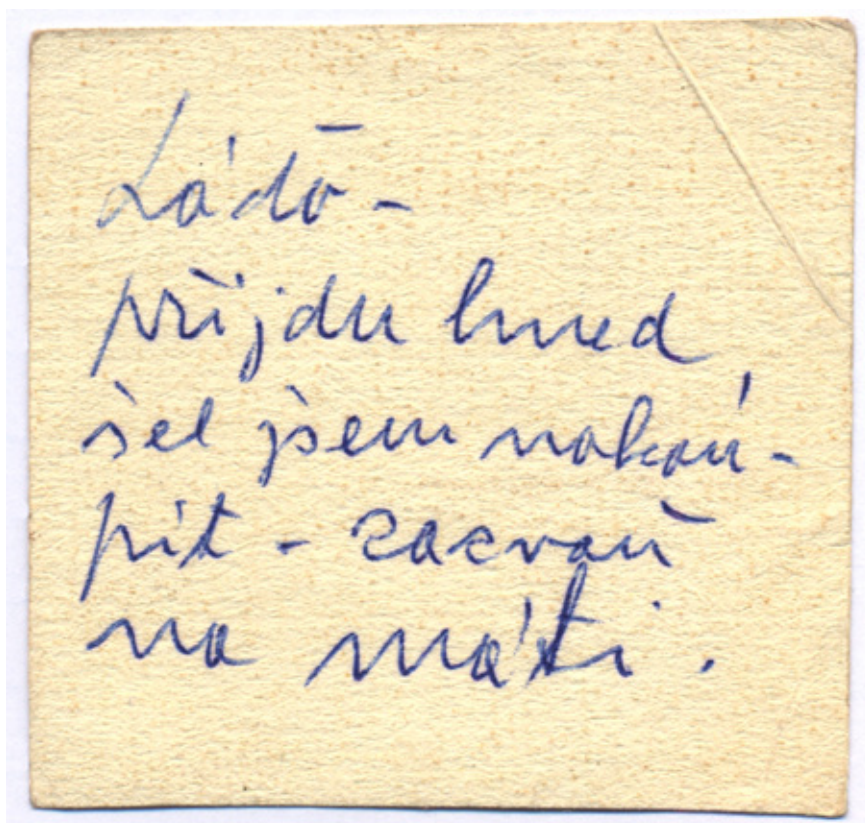 Láďo -
přijdu hned,
šel jsem nakou-
pit - zazvoň
na máti.